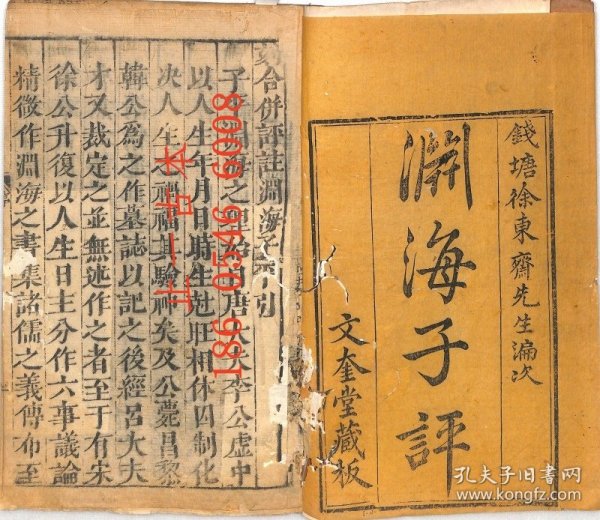 錢塘徐東齋先生編次
淵海子評
文奎堂藏板
合併評註淵海子平引
子平淵海之理始自唐大夫李公虛中
以人生年月日時生尅旺相休囚制化
決人生之禍福其驗神矣及公薨昌黎
韓公為之作墓誌以記之後經呂大夫
才又裁定之並無述作之者至于有宋
徐公升復以人生日主分作六事議論
精微作淵海之書集諸儒之義傳布至
北一古本
186 0546 6008
孔夫子旧书网
www.kongfz.com